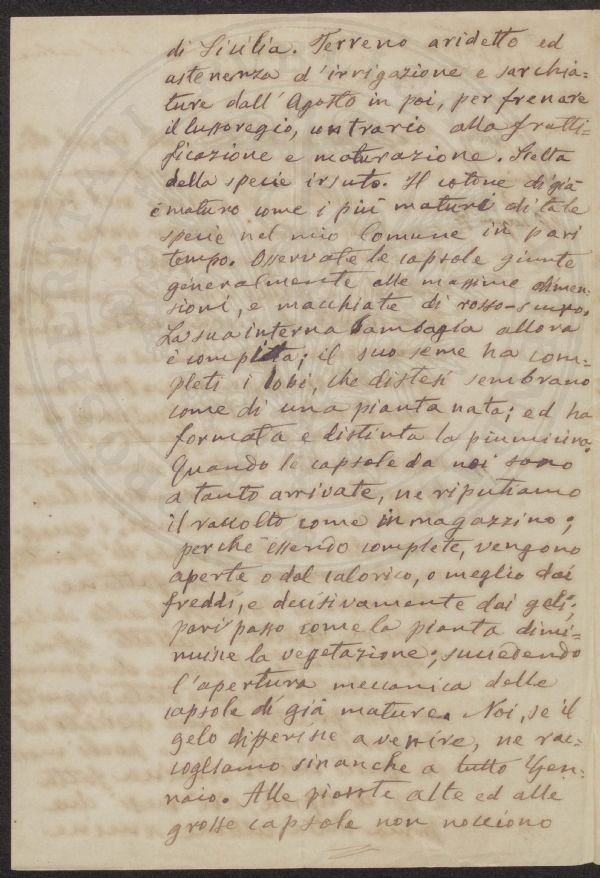 di Sicilia. Terreno aridetto ed
astenenza d'irrigazione e sarchia=
ture dall'Agosto in poi, per frenare
il lussoregio, contrario alla frutti=
ficazione e maturazione. Scelta
della specie irsuto. Il cotone di già
è maturo come i più maturi di tale
specie nel mio Comune in pari
tempo. Osservate le capsole giunte
generalmente alle massime dimen=
sioni, e macchiate di rosso-scuro.
La sua interna bambagia allora
è compitta; il suo seme ha com=
pleti i lobi, che distesi sembrano
come di una pianta nata; ed ha
formata e distinta la piumicina.
Quando le capsole da noi sono
a tanto arrivate, ne riputiamo
il raccolto come in magazzino;
perchè essendo complete, vengono
aperte o dal calorico, o meglio dai
freddi, e decisivamente dai geli;
pari passo come la pianta dimi=
nuisce la vegetazione; succedendo
l'apertura meccanica delle
capsole di già mature. Noi, se il
gelo differisce a venire, ne rac=
cogliamo sinanche a tutto Gen=
naio. Alle piante alte ed alle
grosse capsole non nocciono